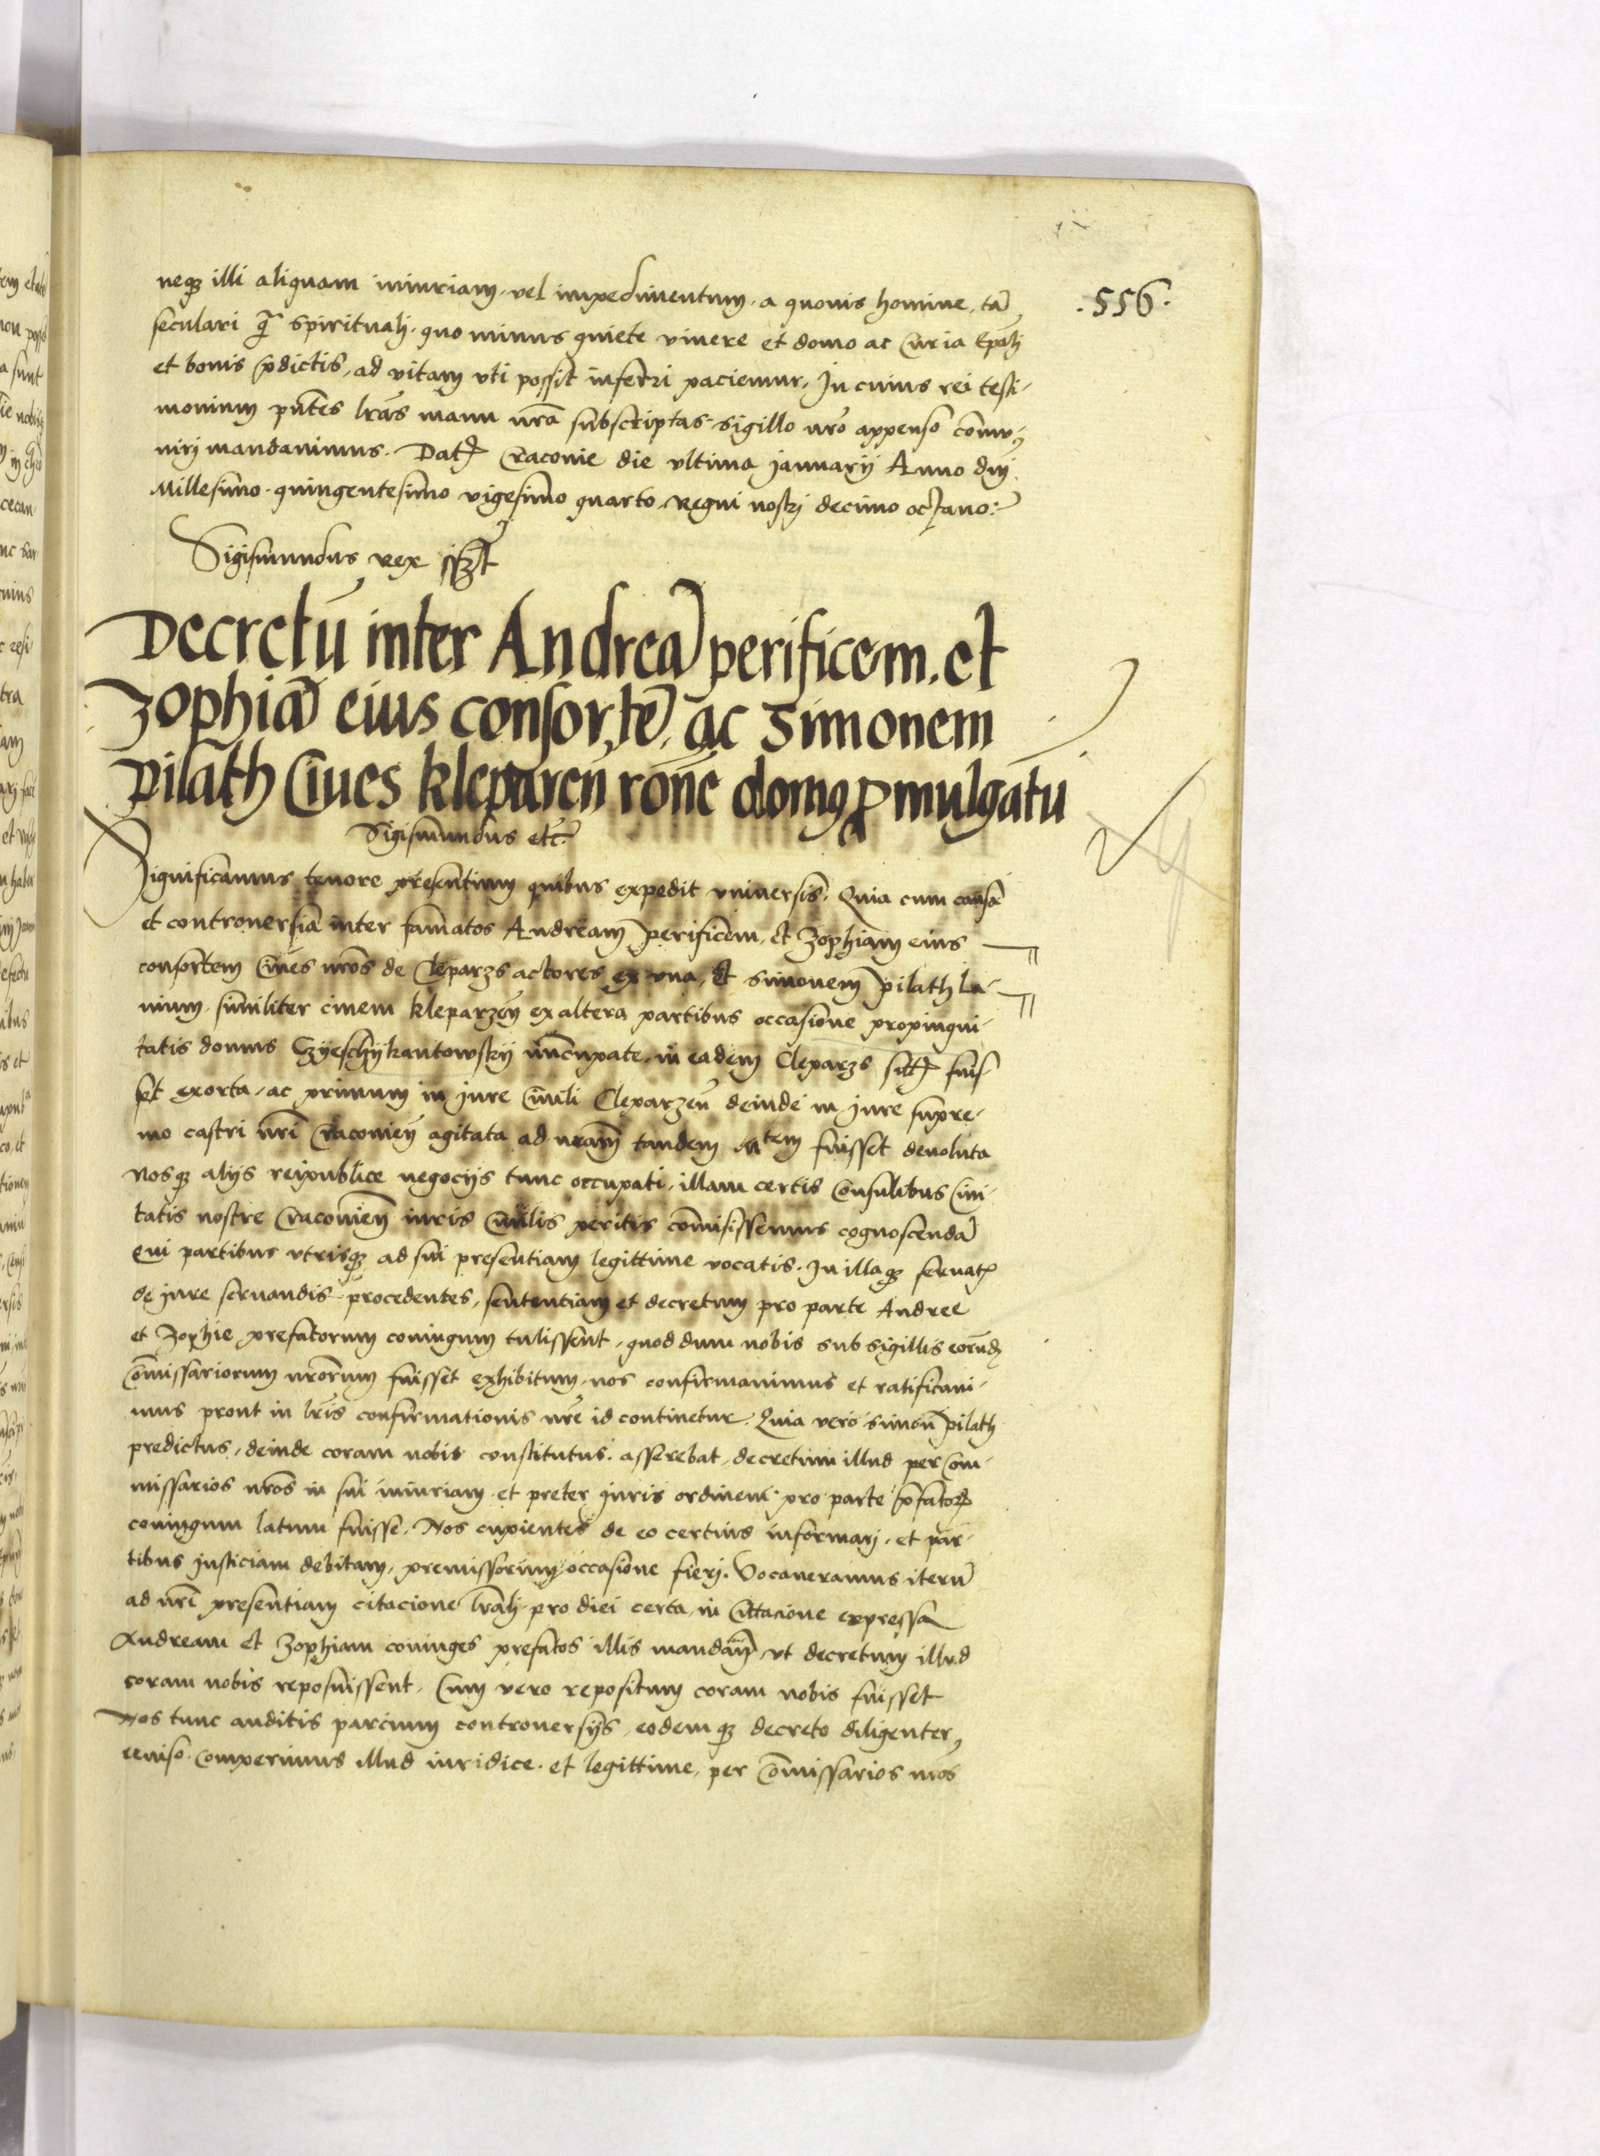 .556.
neqȝ illi aliquam iniuriam, vel impedimentum, a quouis homine, tā
seculari q̄ spirituali, quo minus quiete viuere et domo ac Curia Ep̄ali
et bonis p̄dictis, ad vitam vti possit inferri paciemur, In cuius rei testi-
monium p̄ntes lr̄as manu nr̄a subscriptas, sigillo nr̄o appenso cōmu-
niri mandauimus. Datꝫ Cracouie die vltima Januarij Anno dn̄i
Millesimo quingentesimo vigesimo quarto, Regni nostri decimo octauo:
Sigismundus rex sszt
Decretū inter Andreā perificem, et
Zophiā eius consortē, ac Simonem
Pilath Ciues kleparen̄ rōne domꝰ ꝓmulgatū
Sigismundus etc.
Significamus tenore presentium quibus expedit vniuersis, Quia cum causa
et controuersia inter famatos Andream perificem, et Zophiam eius
consortem Ciues nr̄os de Cleparzs actores ex vna, Et Simonem pilath la-
nium, similiter ciuem kleparzen̄ ex altera partibus occasione propinqui-
tatis domus Czyeschykantowskij nūcupate, in eadem Cleparzs sitꝫ fuis-
set exorta, ac primum in Jure Ciuili Cleparzen̄ deinde in Jure supre-
mo castri nr̄i Cracouien̄ agitata ad nr̄am tandem Mtem fuisset deuoluta
Nosqȝ alijs reipublice negocijs tunc occupati, illam certis Consulibus Ciui-
tatis nostre Cracouien̄ iuris Ciuilis peritis cōmisissemus cognoscendā
Qui partibus vtrisqȝ ad sui presentiam legittime vocatis, In illaqȝ seruatꝭ
de jure seruandis procedentes, sententiam et decretum pro parte Andree
et Zophie prefatorum coniugum tulissent, quod dum nobis sub sigillis eorūdȝ
Cōmissariorum nr̄orum fuisset exhibitum, nos confirmauimus et ratificaui-
mus prout in lr̄is confirmationis nr̄e id continetur. Quia vero Simon pilath
predictus, deinde coram nobis constitutus, asserebat, decretum illud per Com-
missarios nr̄os in sui iniuriam et preter Juris ordinem pro parte p̄fatoꝝ
coniugum latum fuisse. Nos cupientes de eo certius informari, et par-
tibus Justiciam debitam, premissorum occasione fieri. Vocaueramus iterū
ad nr̄i presentiam citacione lr̄ali pro diei certa in Cittacione expressa
Andream et Zophiam coniuges prefatos illis mandan̄, vt decretum illud
coram nobis reposuissent, Cum vero repositum coram nobis fuisset
Nos tunc auditis parcium controuersijs, eodemqȝ decreto diligenter
reuiso, Comperimus illud iuridice, et legittime, per Cōmissarios nr̄os